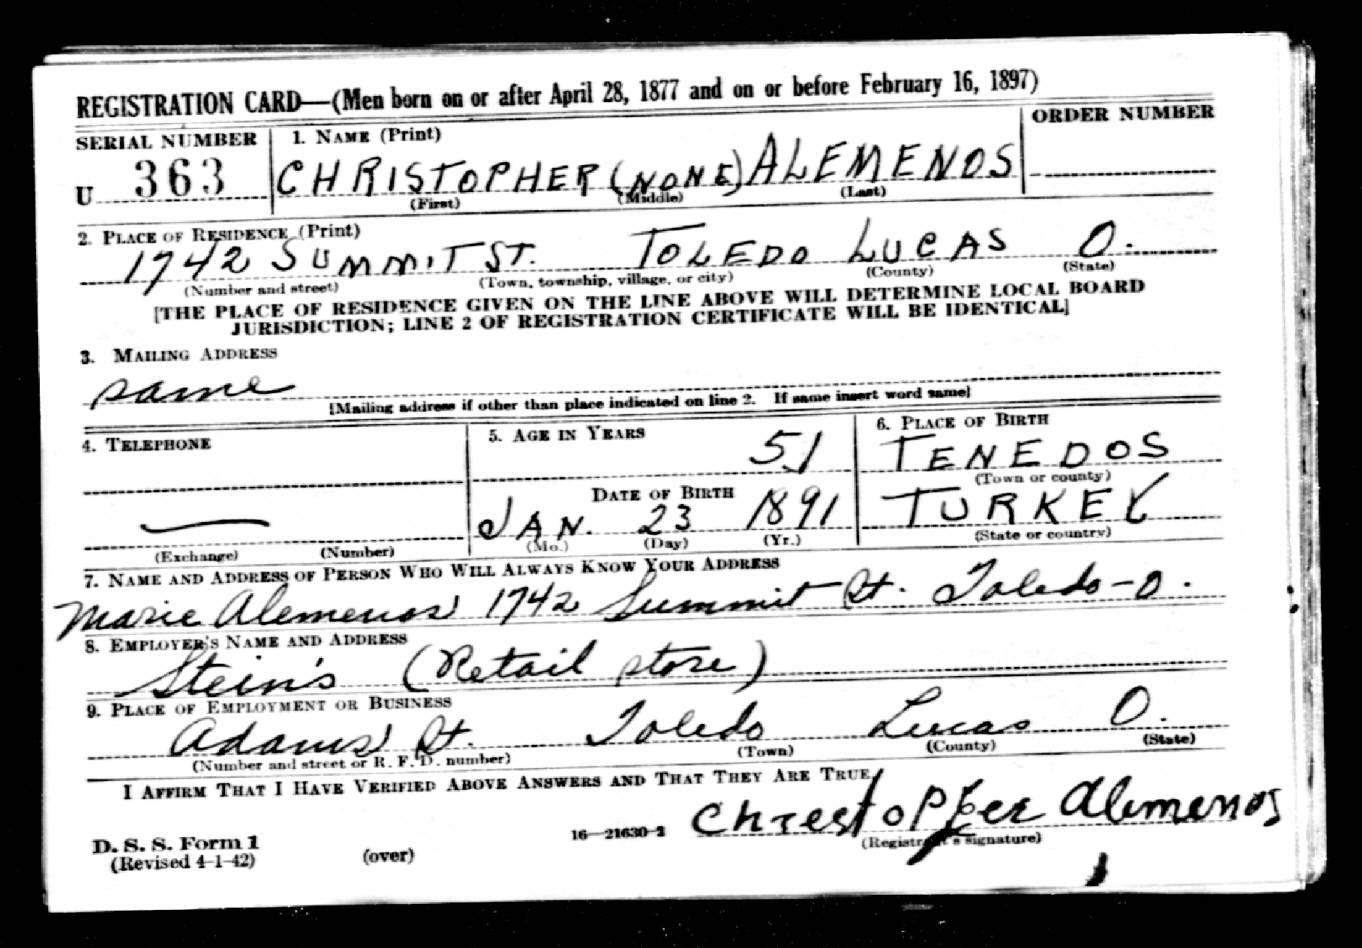 REGISTRATION CARD—(Men born on or after April 28, 1877 and on or before February 16, 1897)
SERIAL NUMBER
1. NAME (Print)
ORDER NUMBER
U 363
CHRISTOPHER (NONE) ALEMENOS
(First) (Middle) (Last)
2. PLACE OF RESIDENCE (Print)
1742 SUMMIT ST. TOLEDO LUCAS O.
(Number and street) (Town, township, village, or city) (County) (State)
[THE PLACE OF RESIDENCE GIVEN ON THE LINE ABOVE WILL DETERMINE LOCAL BOARD
JURISDICTION; LINE 2 OF REGISTRATION CERTIFICATE WILL BE IDENTICAL]
3. MAILING ADDRESS
same
[Mailing address if other than place indicated on line 2. If same insert word same]
4. TELEPHONE
5. AGE IN YEARS
6. PLACE OF BIRTH
51
TENEDOS
(Town or county)
DATE OF BIRTH
—
JAN. 23 1891
TURKEY
(Exchange) (Number)
(Mo.) (Day) (Yr.)
(State or country)
7. NAME AND ADDRESS OF PERSON WHO WILL ALWAYS KNOW YOUR ADDRESS
Marie Alemenos 1742 Summit St. Toledo-O.
8. EMPLOYER'S NAME AND ADDRESS
Stein's (Retail store)
9. PLACE OF EMPLOYMENT OR BUSINESS
Adams St. Toledo Lucas O.
(Number and street or R. F. D. number) (Town) (County) (State)
I AFFIRM THAT I HAVE VERIFIED ABOVE ANSWERS AND THAT THEY ARE TRUE.
Christopher Alemenos
D. S. S. Form 1
16—21630-2
(Registrant's signature)
(Revised 4-1-42)
(over)